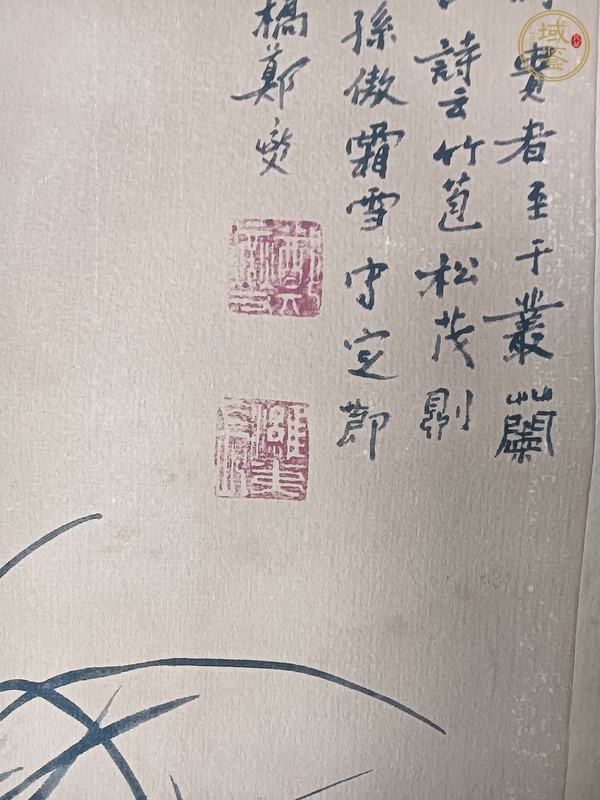 賢者至于叢蘭
詩云竹苞松茂則
孫傲霜雪守定節
橋鄭燮
域鑒